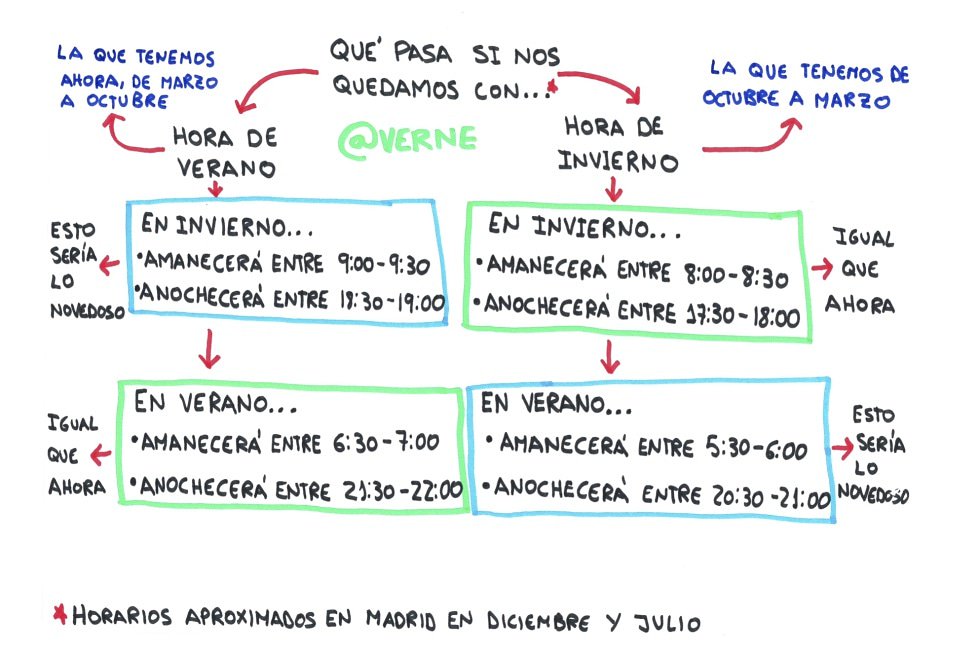 QUÉ PASA SI NOS
QUEDAMOS CON...*
LA QUE TENEMOS
AHORA, DE MARZO
A OCTUBRE
HORA DE
VERANO
@VERNE
HORA DE
INVIERNO
LA QUE TENEMOS DE
OCTUBRE A MARZO
ESTO
SERÍA
LO
NOVEDOSO
EN INVIERNO...
•AMANECERÁ ENTRE 9:00-9:30
•ANOCHECERÁ ENTRE 18:30-19:00
EN INVIERNO...
•AMANECERÁ ENTRE 8:00-8:30
•ANOCHECERÁ ENTRE 17:30-18:00
IGUAL
QUE
AHORA
IGUAL
QUE
AHORA
EN VERANO...
•AMANECERÁ ENTRE 6:30-7:00
•ANOCHECERÁ ENTRE 21:30-22:00
EN VERANO...
•AMANECERÁ ENTRE 5:30-6:00
•ANOCHECERÁ ENTRE 20:30-21:00
ESTO
SERÍA
LO
NOVEDOSO
*HORARIOS APROXIMADOS EN MADRID EN DICIEMBRE Y JULIO